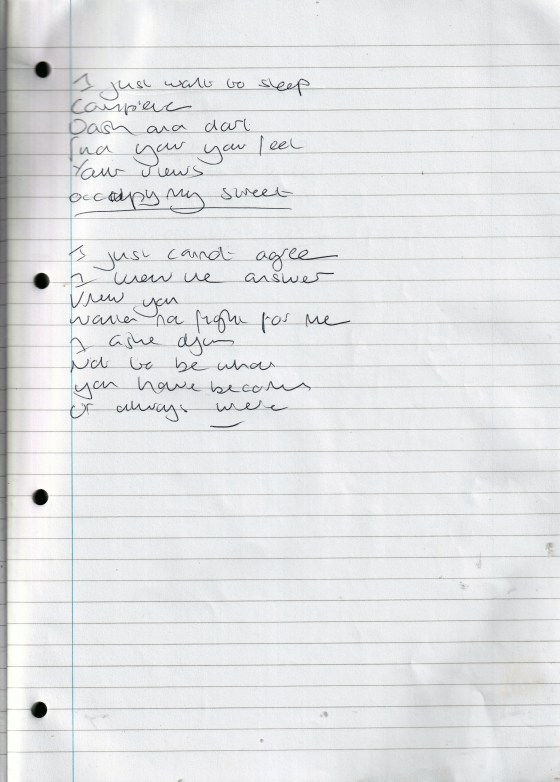 I just want to sleep
Complete
Dash and dart
And your you feel
Your views
occupy my sweet

I just cannot agree
I knew the answer
When you
wanted to fight for me
I asked you
Not to be what
you have become
Or always were